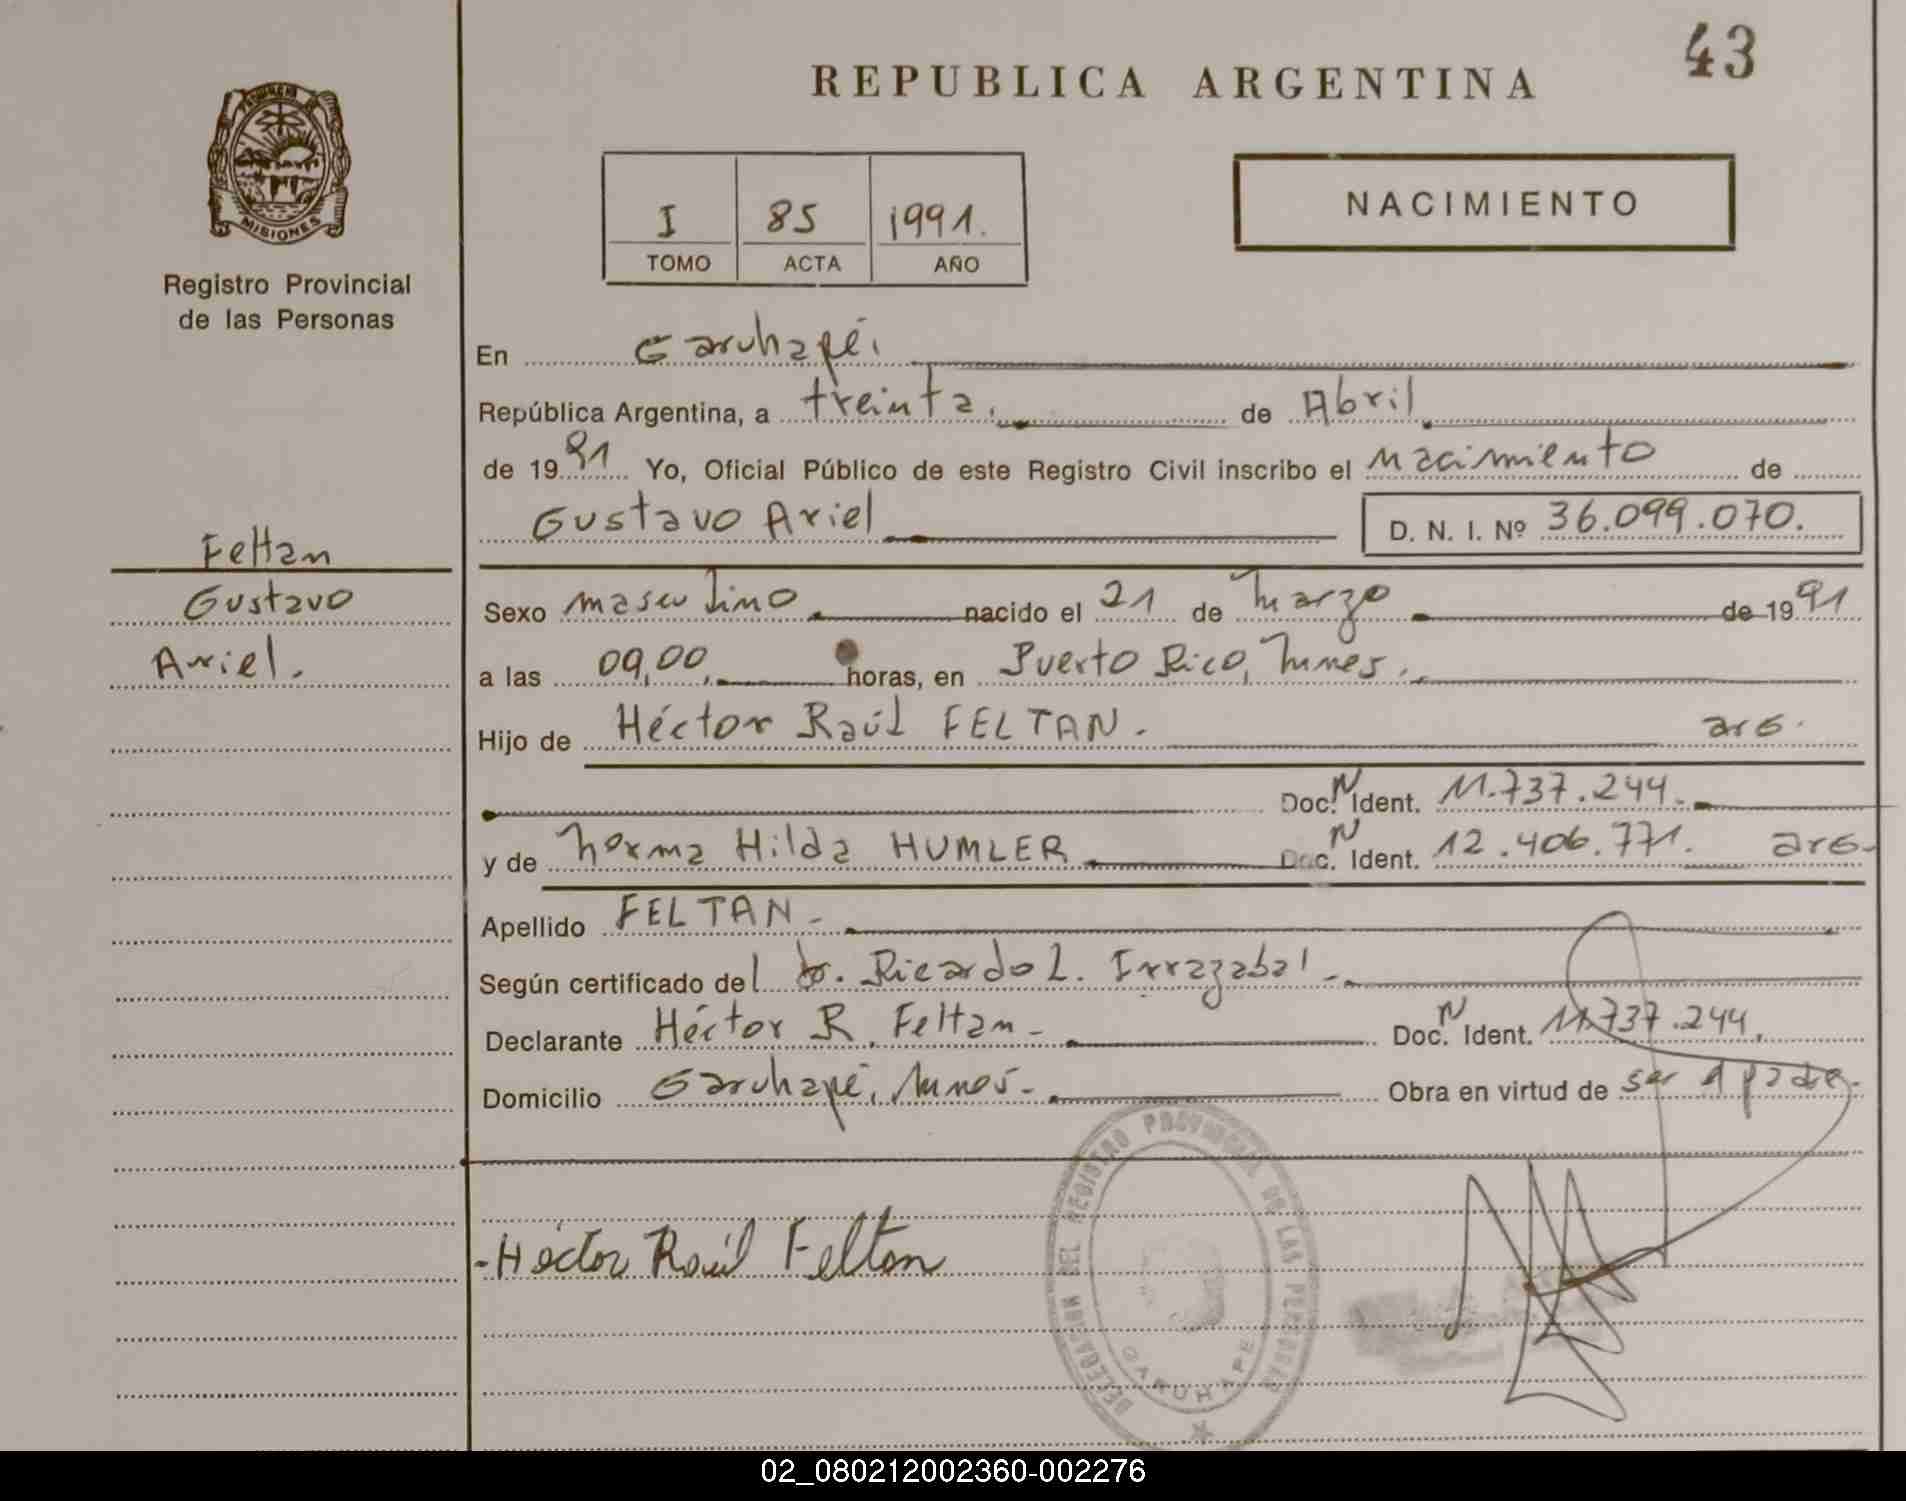 43
REPUBLICA ARGENTINA
PROVINCIA DE
MISIONES
Registro Provincial
de las Personas
I 85 1991.
TOMO ACTA AÑO
NACIMIENTO
En Garuhapé.
República Argentina, a treinta. de Abril
de 1991 Yo, Oficial Público de este Registro Civil inscribo el nacimiento de
Gustavo Ariel D. N. I. Nº 36.099.070.
Feltan
Gustavo
Ariel.
Sexo masculino nacido el 21 de marzo de 1991
a las 09,00. horas, en Puerto Rico,
Hijo de Héctor Raúl FELTAN. arg.
Doc. N Ident. 11.737.244.
y de Norma Hilda HUMLER Doc. N Ident. 12.406.771. arg.
Apellido FELTAN-
Según certificado del Dr. Ricardo L. Irrazabal-
Declarante Héctor R. Feltan- Doc. N Ident. 11.737.244.
Domicilio Garuhapé, Obra en virtud de ser el padre.
-Héctor Raúl Feltan
DELEGACION DEL REGISTRO PROVINCIAL DE LAS PERSONAS
GARUHAPE
02_080212002360-002276